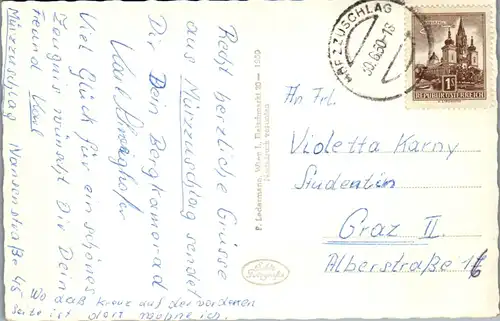 Recht herzliche Grüsse
aus Mürzzuschlag sendet
Dir Dein Bergkamerad
Karl
Viel Glück für ein schönes
Zeugnis wünscht Dir Dein
Freund Karl
Mürzzuschlag Nansenstraße 45
Wo daß Kreuz auf der vorderen
Seite ist dort wohne ich.
P. Ledermann, Wien I., Fleischmarkt 20 – 1959
Nachdruck verboten
Echte Fotografie
MÜRZZUSCHLAG
30.6.60-18
1S
REPUBLIK ÖSTERREICH
An Frl.
Violetta Karny
Studentin
Graz II
Alberstraße 16